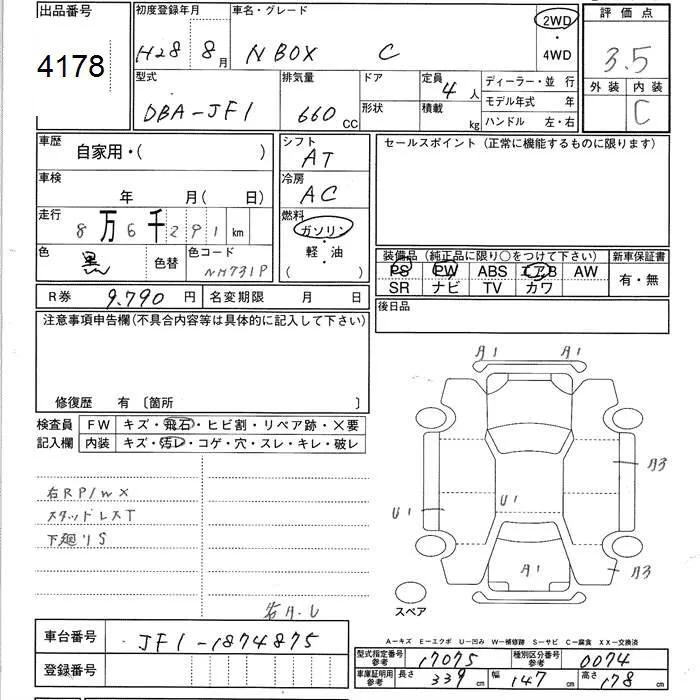 出品番号
4178
初度登録年月
H28 8月
車名・グレード
N BOX C
2WD
・
4WD
評価点
3.5
外装 内装
C
型式
DBA-JF1
排気量
660 CC
ドア
形状
定員 4人
積載 kg
ディーラー・並行
モデル年式 年
ハンドル 左・右
車歴
自家用・( )
車検
年 月( 日)
走行
8万6千291 km
色
黒
色替
色コード
NH731P
シフト
AT
冷房
AC
燃料
ガソリン
・
軽・油
( )
セールスポイント (正常に機能するものに限ります)
装備品 (純正品に限り○をつけて下さい)
PS PW ABS エアB AW
SR ナビ TV カワ
新車保証書
有・無
後日品
R券 9.790 円
名変期限 月 日
注意事項申告欄(不具合内容等は具体的に記入して下さい)
修復歴 有 〔箇所 〕
検査員
記入欄
FW キズ・飛石・ヒビ割・リペア跡・×要
内装 キズ・汚レ・コゲ・穴・スレ・キレ・破レ
右RP/W×
スタッドレスT
下廻りS
A1 A1
A3
U1
U1
A1
A3
スペア
車台番号
JF1-1874875
登録番号
A-キズ E-エクボ U-凹み W-補修跡 S-サビ C-腐食 XX-交換済
型式指定番号
参考
17075
種別区分番号
参考
0074
車庫証明用
参考
長さ 339 cm
幅 147 cm
高さ 178 cm